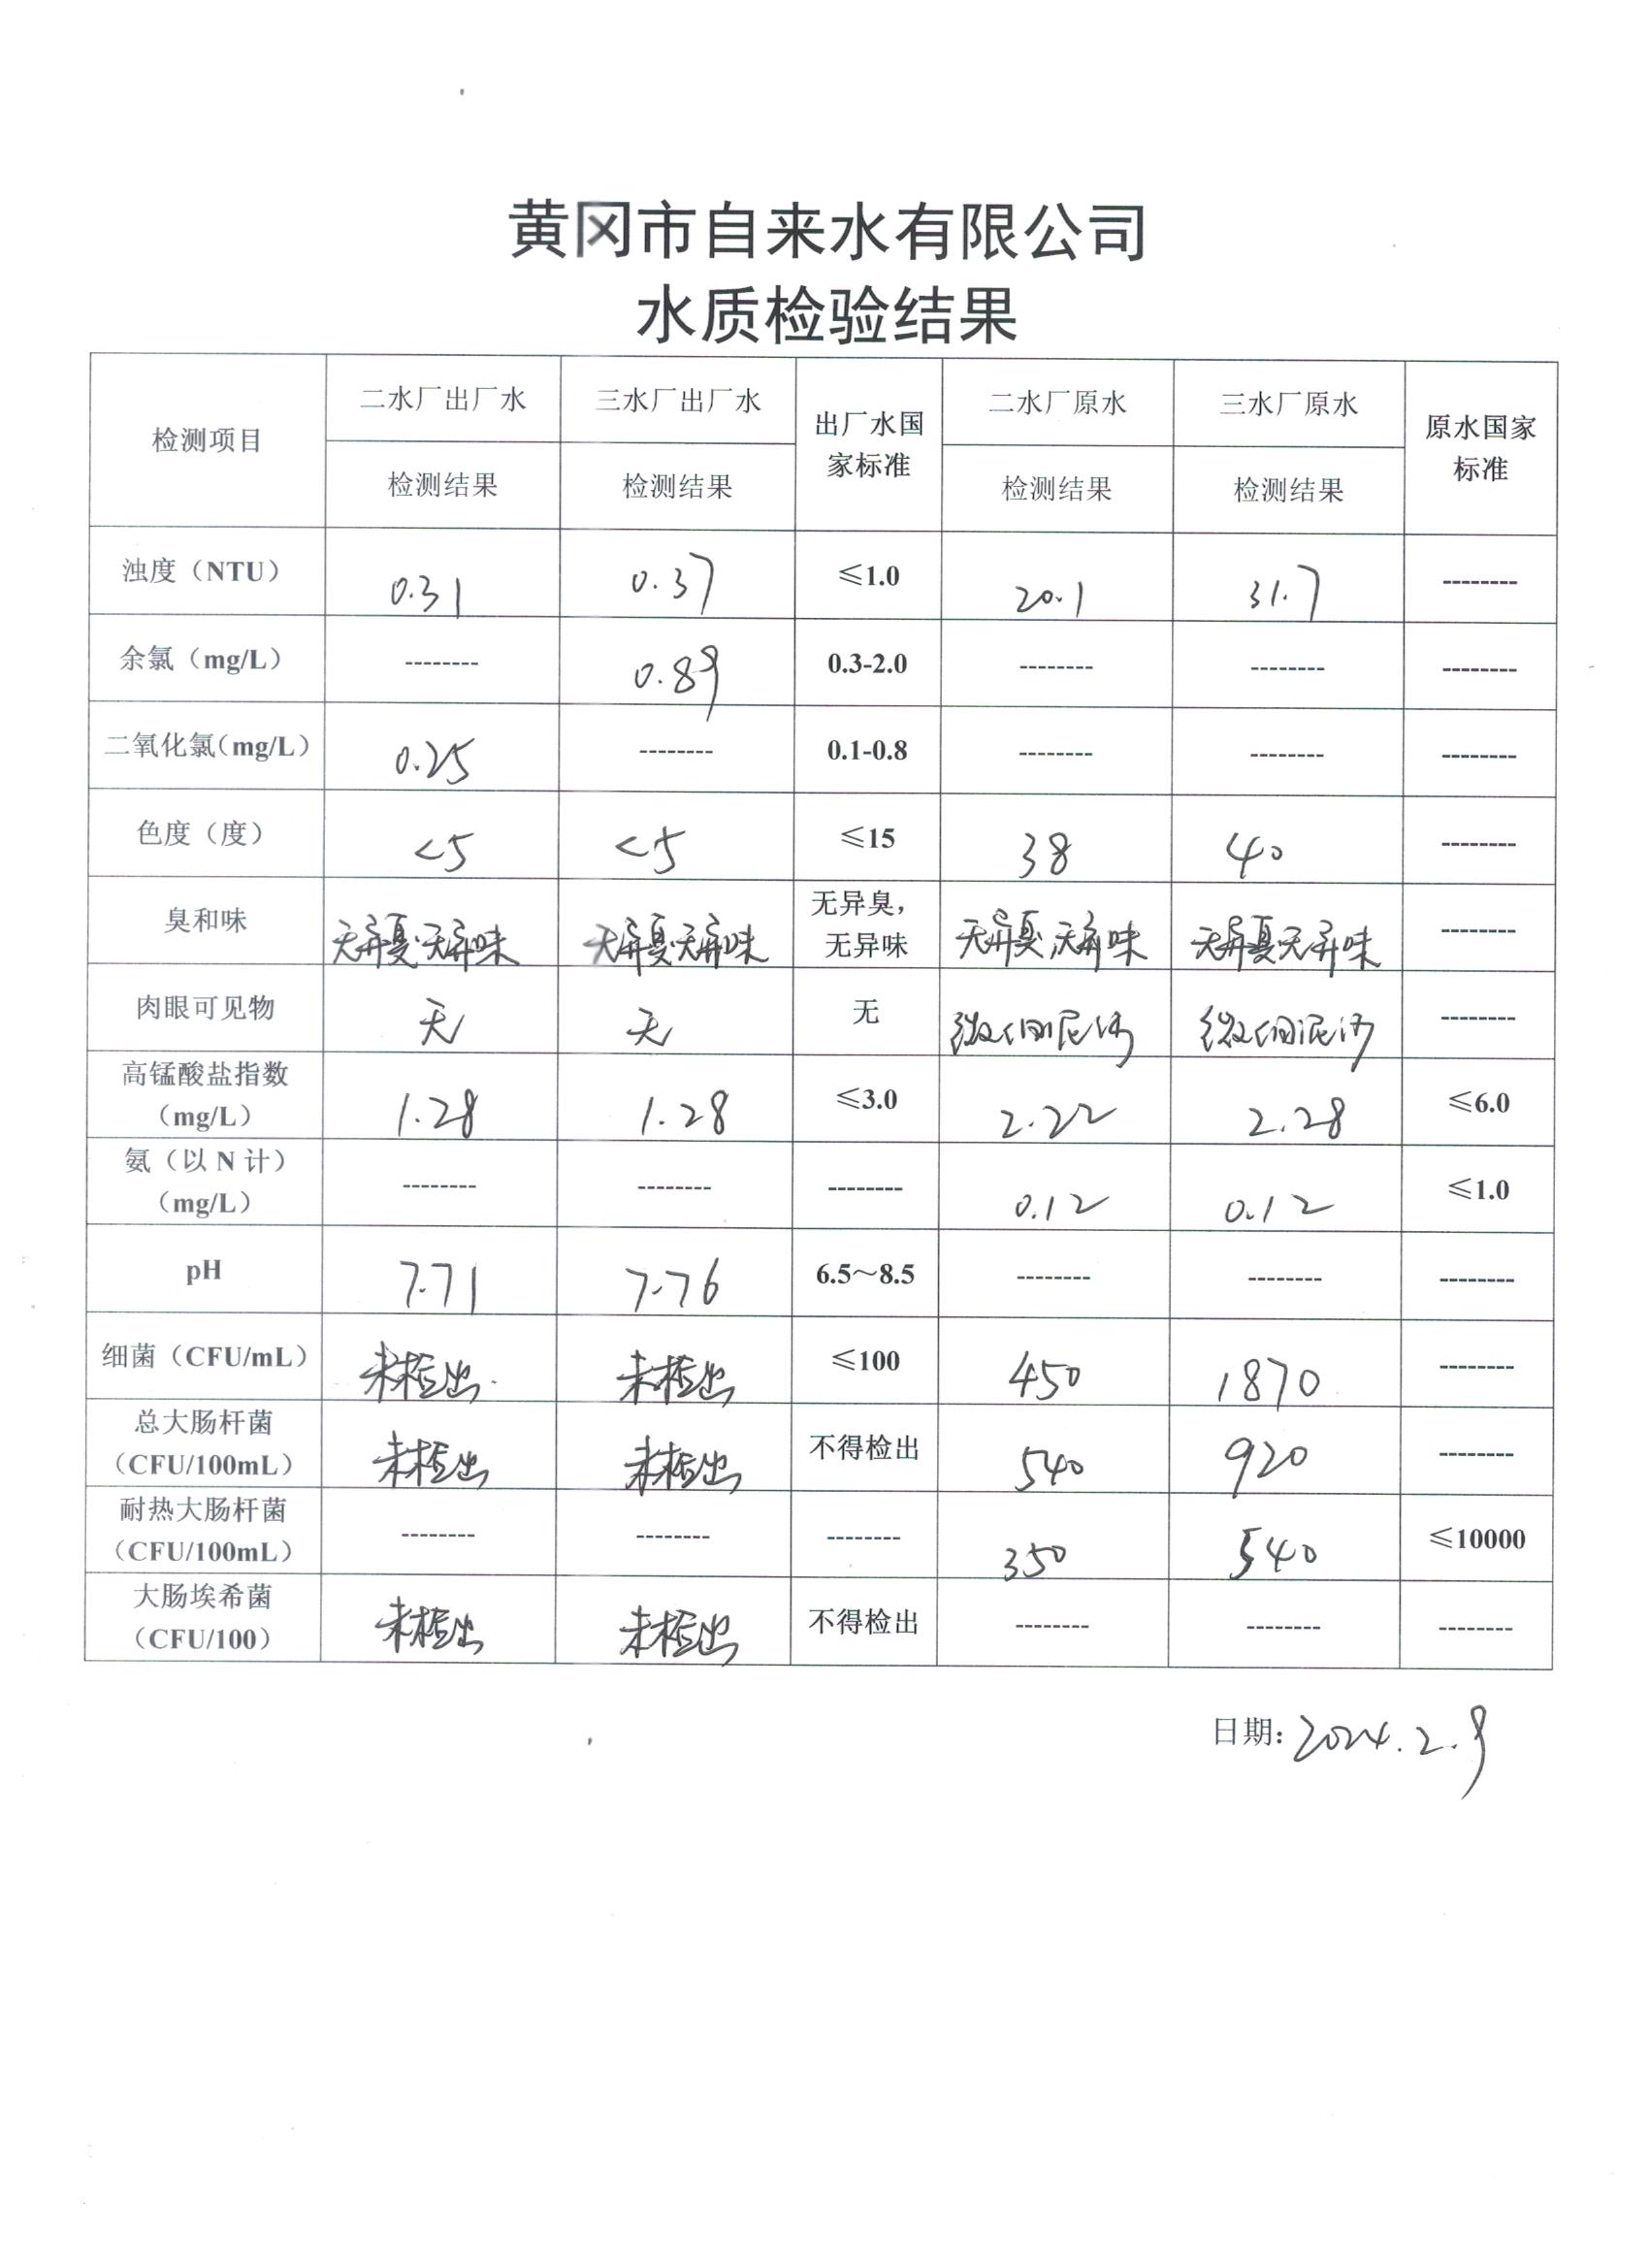 黄冈市自来水有限公司
水质检验结果
检测项目 二水厂出厂水 三水厂出厂水 出厂水国家标准 二水厂原水 三水厂原水 原水国家标准
检测结果 检测结果 检测结果 检测结果
浊度（NTU） 0.31 0.37 ≤1.0 20.1 31.7 --------
余氯（mg/L） -------- 0.89 0.3-2.0 -------- -------- --------
二氧化氯（mg/L） 0.25 -------- 0.1-0.8 -------- -------- --------
色度（度） <5 <5 ≤15 38 40 --------
臭和味 无异臭.无异味 无异臭.无异味 无异臭，无异味 无异臭,无异味 无异臭无异味 --------
肉眼可见物 无 无 无 微细泥沙 微细泥沙 --------
高锰酸盐指数（mg/L） 1.28 1.28 ≤3.0 2.22 2.28 ≤6.0
氨（以 N 计）（mg/L） -------- -------- -------- 0.12 0.12 ≤1.0
pH 7.71 7.76 6.5～8.5 -------- -------- --------
细菌（CFU/mL） 未检出 未检出 ≤100 450 1870 --------
总大肠杆菌（CFU/100mL） 未检出 未检出 不得检出 540 920 --------
耐热大肠杆菌（CFU/100mL） -------- -------- -------- 350 540 ≤10000
大肠埃希菌（CFU/100） 未检出 未检出 不得检出 -------- -------- --------
日期: 2024.2.9